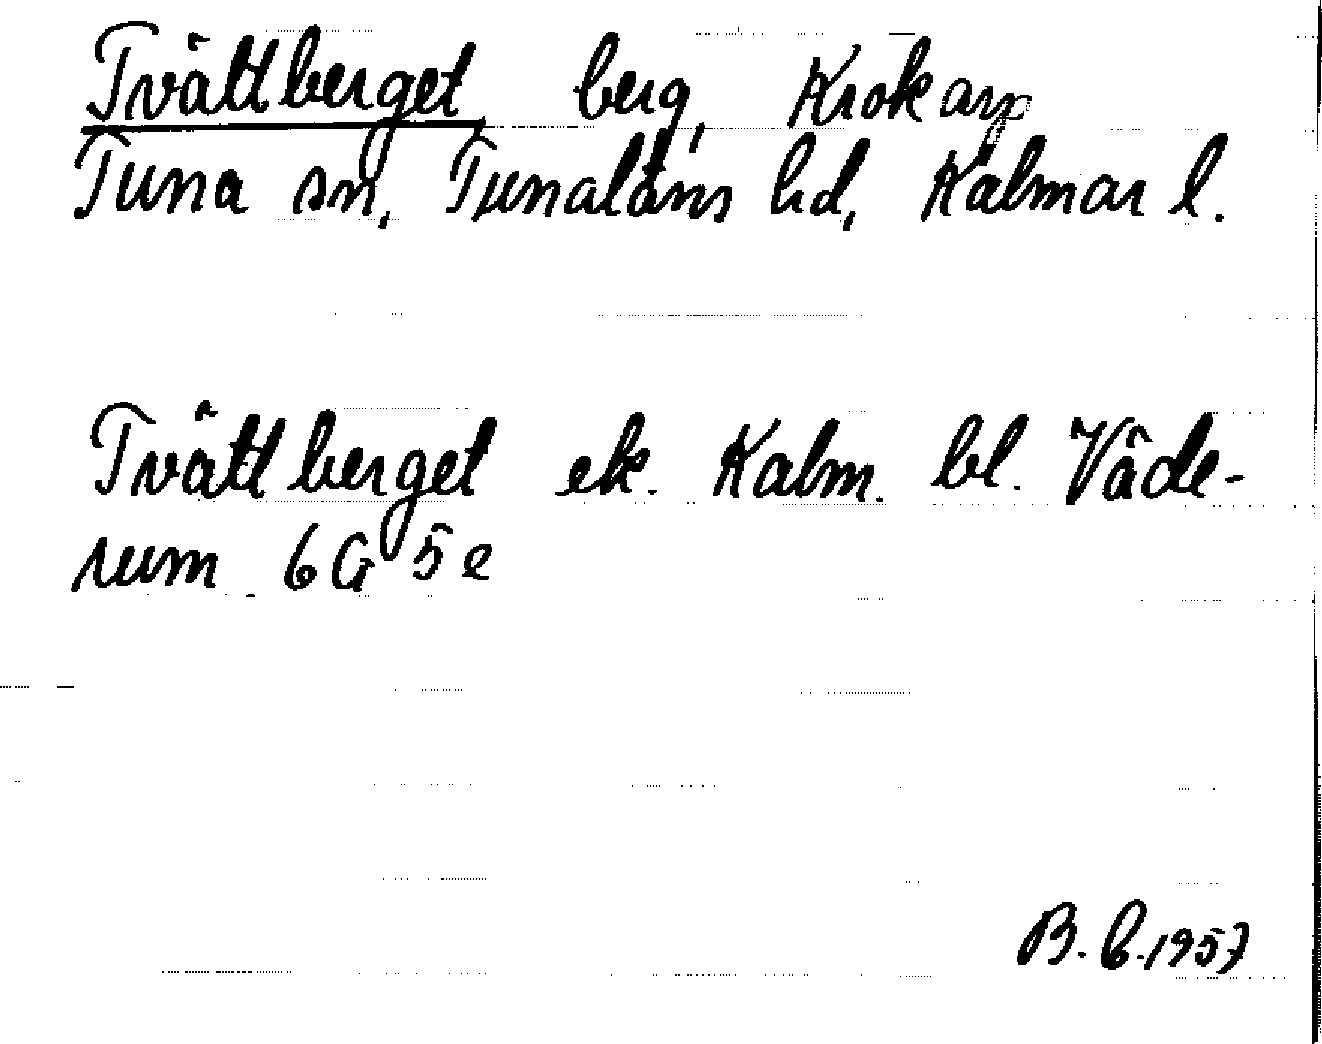 Tvättberget berg, Krokarp
Tuna sn, Tunaläns hd, Kalmar l.
Tvättberget ek. Kalm. bl. Väde-
rum 6G 5e
B. E. 1957